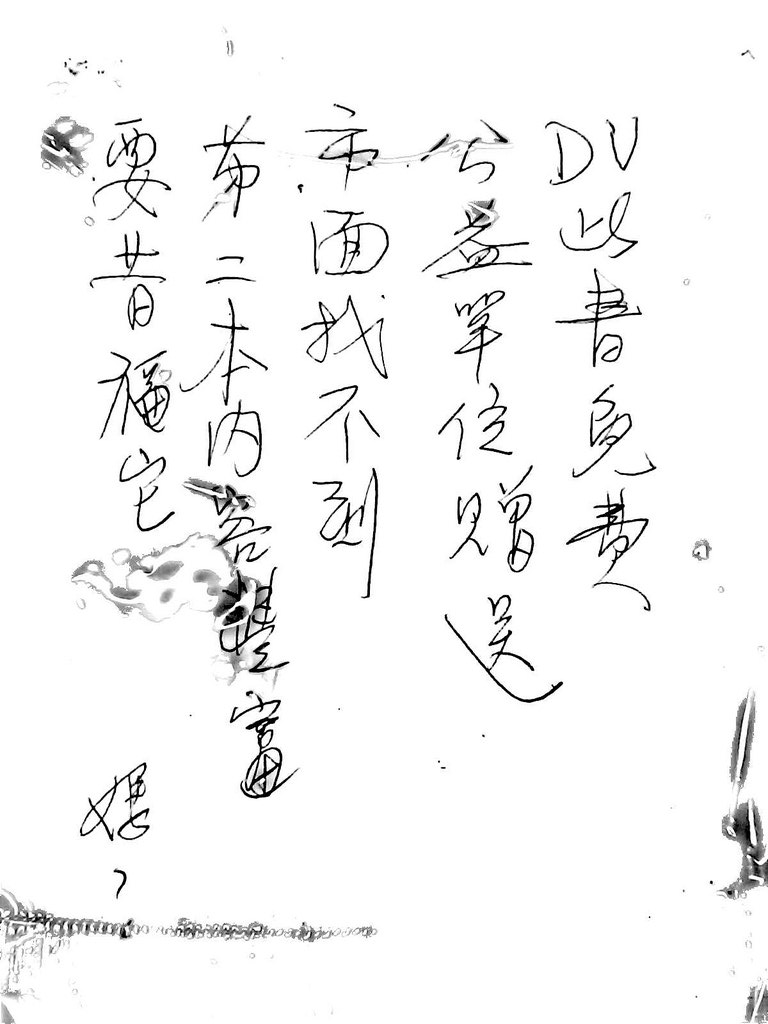 DV此書免費
公益單位贈送
市面找不到
第二本內容豐富
要昔福它
媽